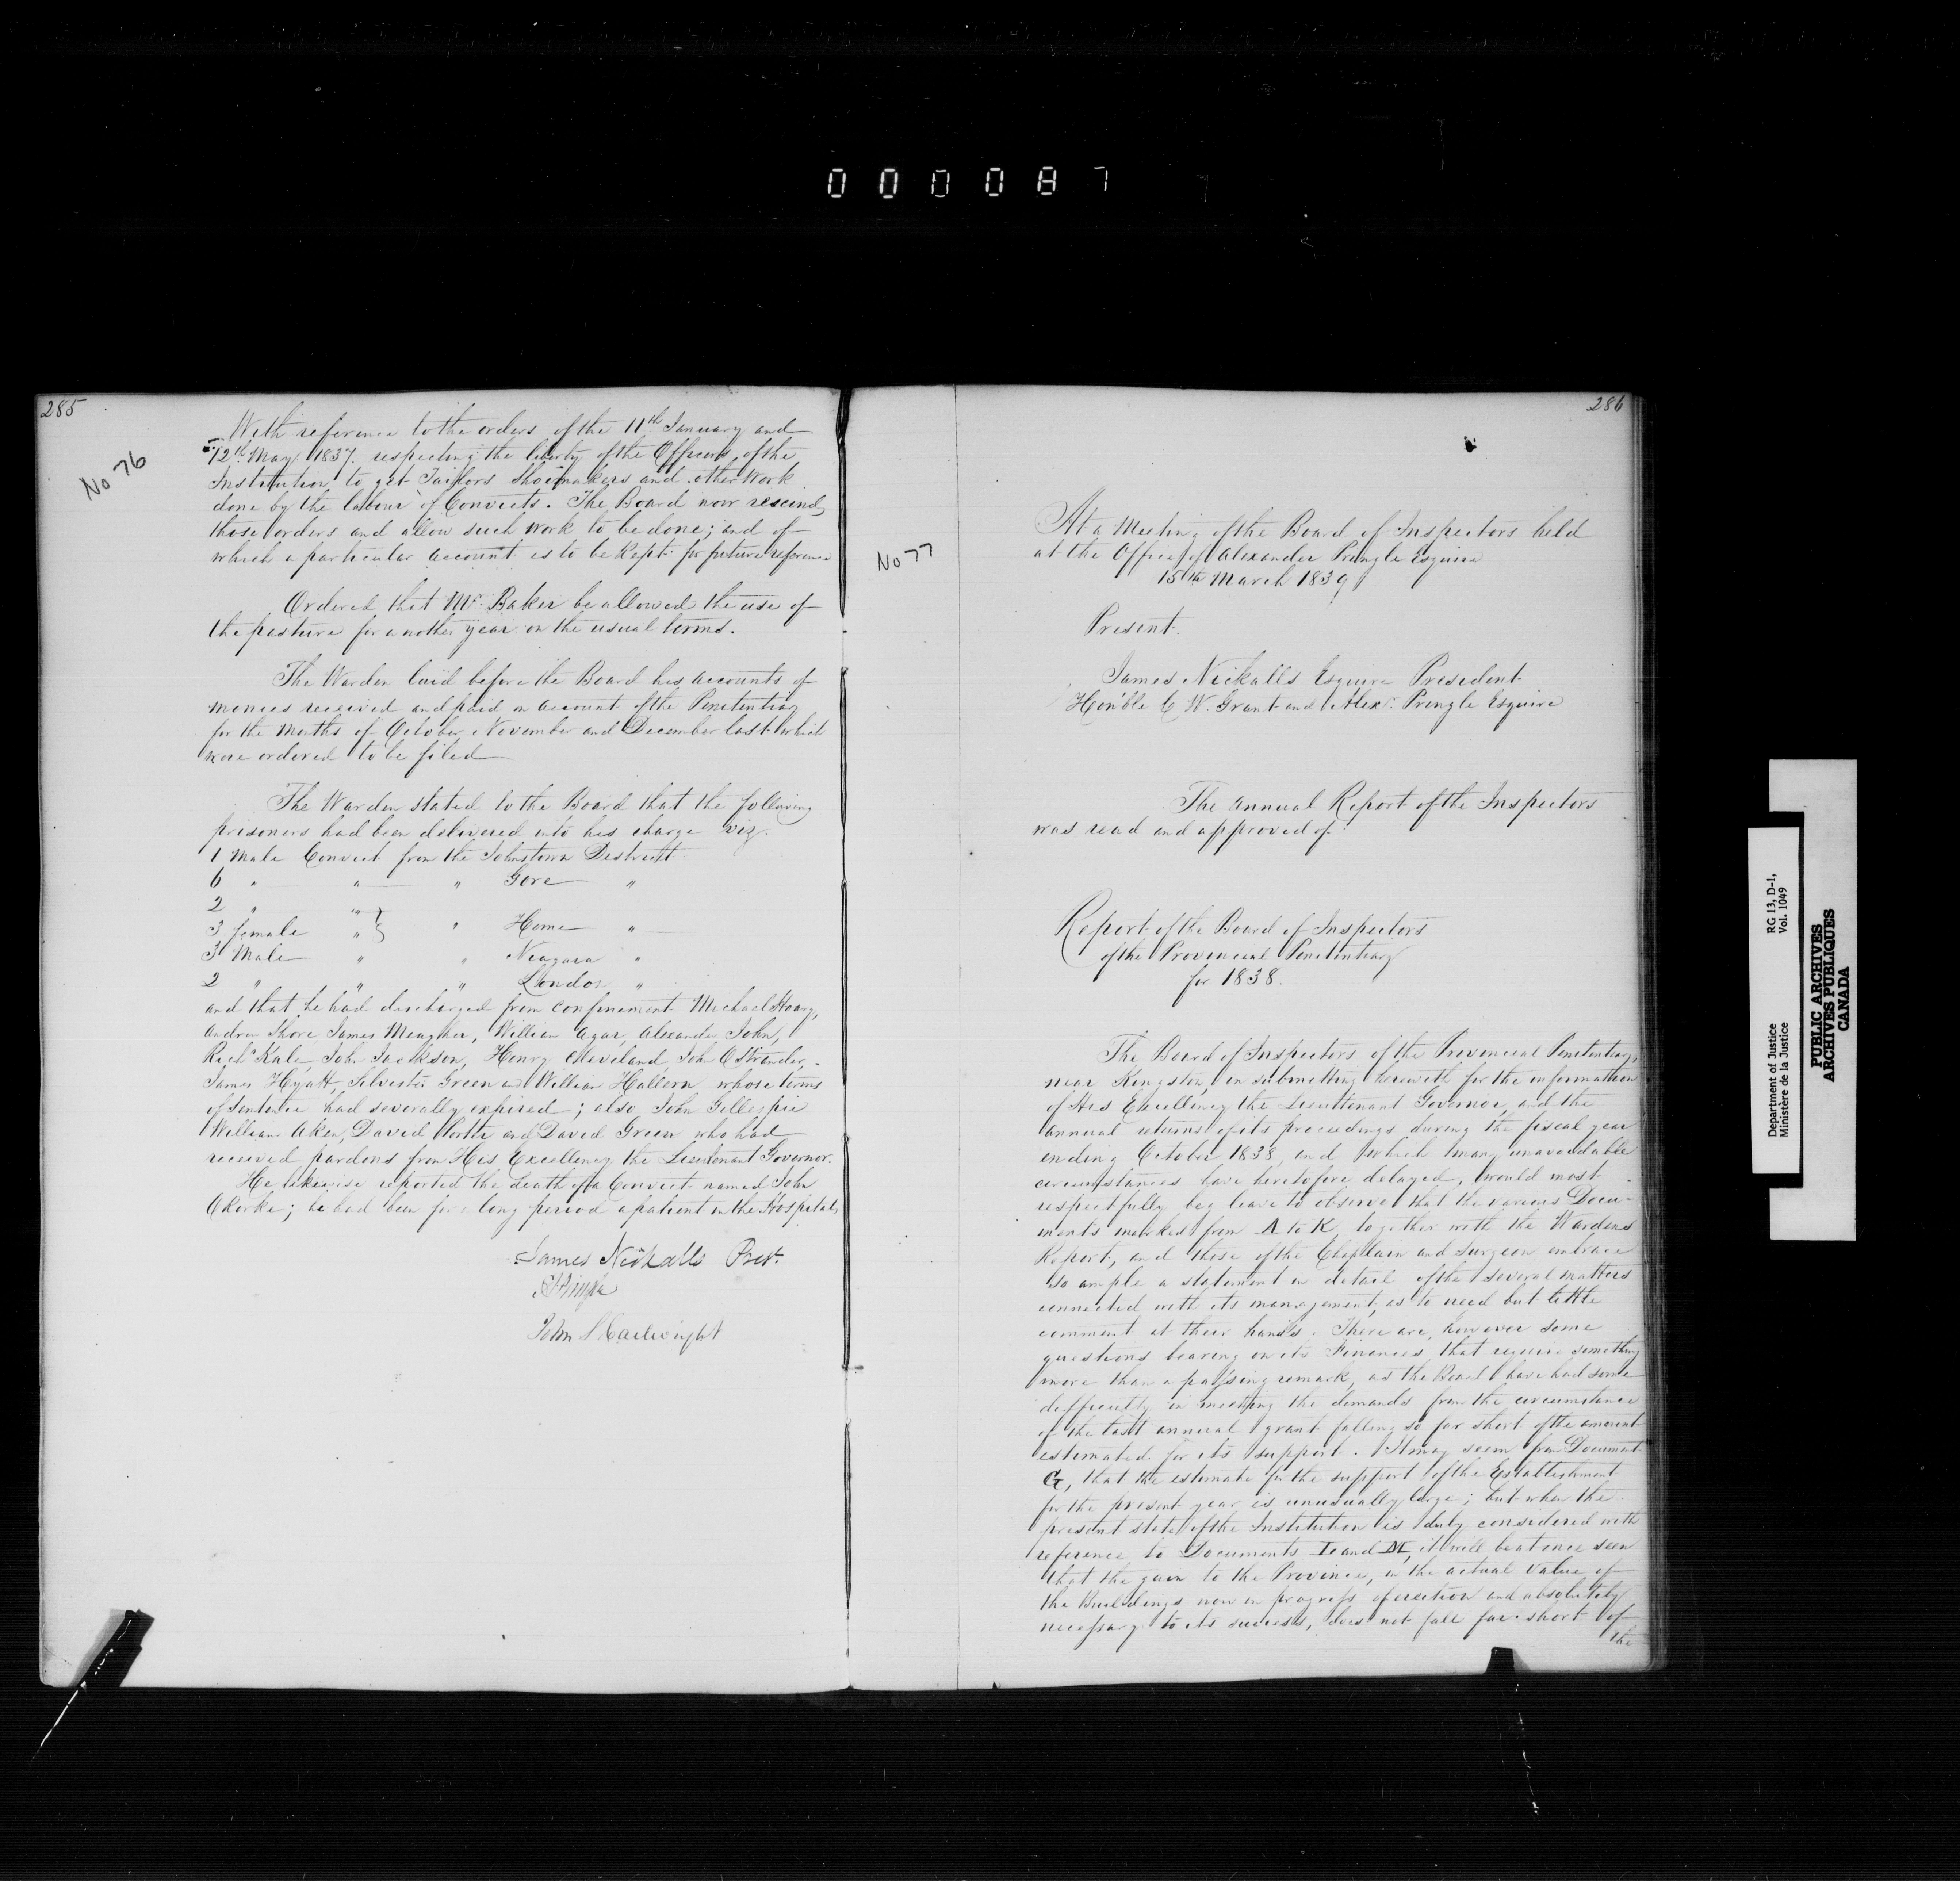 000087
285
No 76
With reference to the orders of the 11th January and
12th May 1837. respecting the liberty of the Officers of the
Institution to get Tailors Shoemakers and other Work
done by the labour of Convicts. The Board now rescind
those orders and allow such work to be done; and of
which a particular account is to be kept for future reference
Ordered that Mr. Baker be allowed the use of
the pasture for another year on the usual terms.
The Warden laid before the Board his accounts of
monies received and paid on account of the Penitentiary
for the Months of October, November and December last which
were ordered to be filed
The Warden stated to the Board that the following
prisoners had been delivered into his charge viz.
1 Male Convict from the Johnstown District
6 " " " Gore "
2 " "
3 female " } " Home "
3 Male " " Niagara "
2 " " " London "
and that he had discharged from confinement Michael Hoary,
Andrew Shore, James Meagher, William Agar, Alexander John,
Richd Kale, John Jackson, Henry Cleveland, John OStrander,
James Hyatt, Silvester Green and William Hallern whose terms
of Sentence had severally expired; also John Gillespie
William Aken, David Porth and David Green who had
received pardons from His Excellency the Lieutenant Governor.
He likewise reported the death of a Convict named John
ORorke; he had been for a long period a patient in the Hospital,
James Nickalls Prest.
A Pringle
John S Cartwright
286
No 77
At a Meeting of the Board of Inspectors held
at the Office of Alexander Pringle Esquire
15th March 1839
Present.
James Nickalls Esquire President
Hon'ble C W. Grant and Alexr. Pringle Esquire
The Annual Report of the Inspectors
was read and approved of
Report of the Board of Inspectors
of the Provincial Penitentiary
for 1838.
The Board of Inspectors of the Provincial Penitentiary,
near Kingston, in submitting herewith for the information
of His Excellency the Lieutenant Governor, and the
annual returns of its proceedings during the fiscal year
ending October 1838, and which many unavoidable
circumstances have heretofore delayed, would most
respectfully beg leave to observe that the various Docu-
ments marked from A to K, together with the Wardens
Report, and those of the Chaplain and Surgeon embrace
so ample a statement in detail of the several matters
connected with its management, as to need but little
comment at their hands. There are, however some
questions bearing on its Finances that require something
more than a passing remark, as the Board have had some
difficulty in meeting the demands from the circumstance
of the last annual grant falling so far short of the amount
estimated for its support. It may seem from Document
G, that the estimate for the support of the Establishment
for the present year is unusually large; but when the
present state of the Institution is duly considered with
reference to Documents I and M, it will be at once seen
that the gain to the Province, in the actual value of
the Buildings now in progress of erection and absolutely
necessary to its success, does not fall far short of
the
Department of Justice RG 13, D-1,
Ministère de la Justice Vol. 1049
PUBLIC ARCHIVES
ARCHIVES PUBLIQUES
CANADA